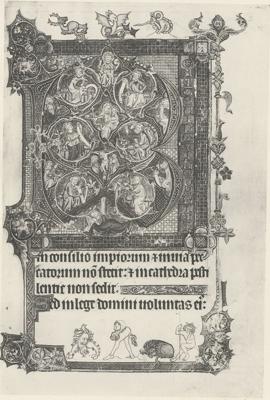 in consilio impiorum ⁊ in uia pec
catorum nõ stetit: ⁊ in cathedra pesti
lentie non sedit.
Sed in lege domini uoluntas eiꝰ